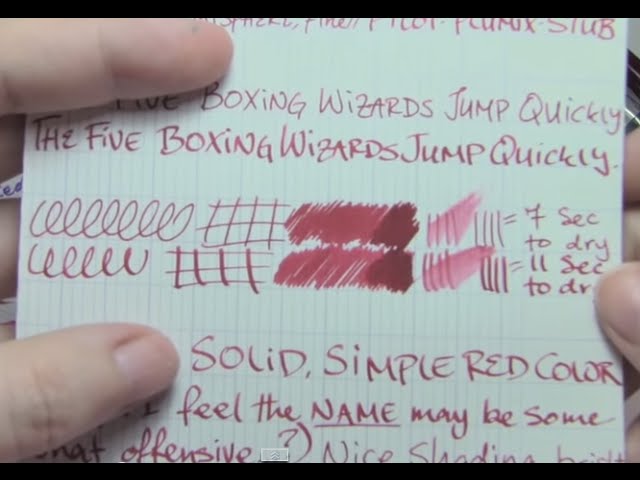 FINE / PILOT-PLUMIX-STUB
FIVE BOXING WIZARDS JUMP QUICKLY
THE FIVE BOXING WIZARDS JUMP QUICKLY.
= 7 Sec
to dry
= 11 Sec
to dr
SOLID, SIMPLE RED COLOR
I feel the NAME may be some
what offensive?) Nice Shading